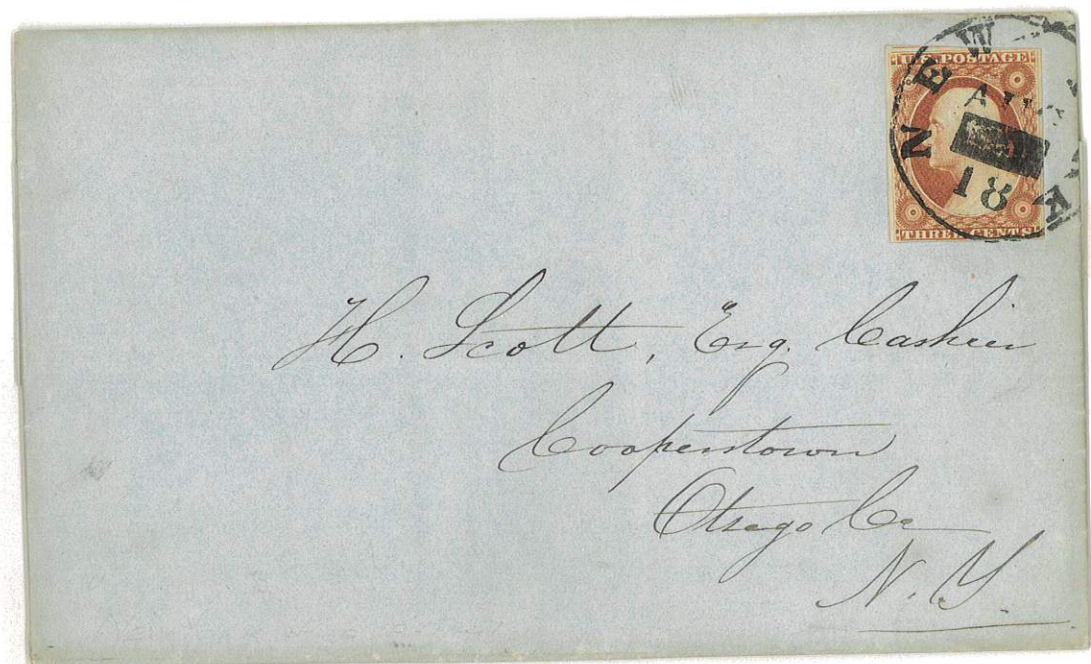 U.S. POSTAGE
THREE CENTS
NEW
18
H. Scott, Esq. Cashier
Cooperstown
Otsego Co
N.Y.